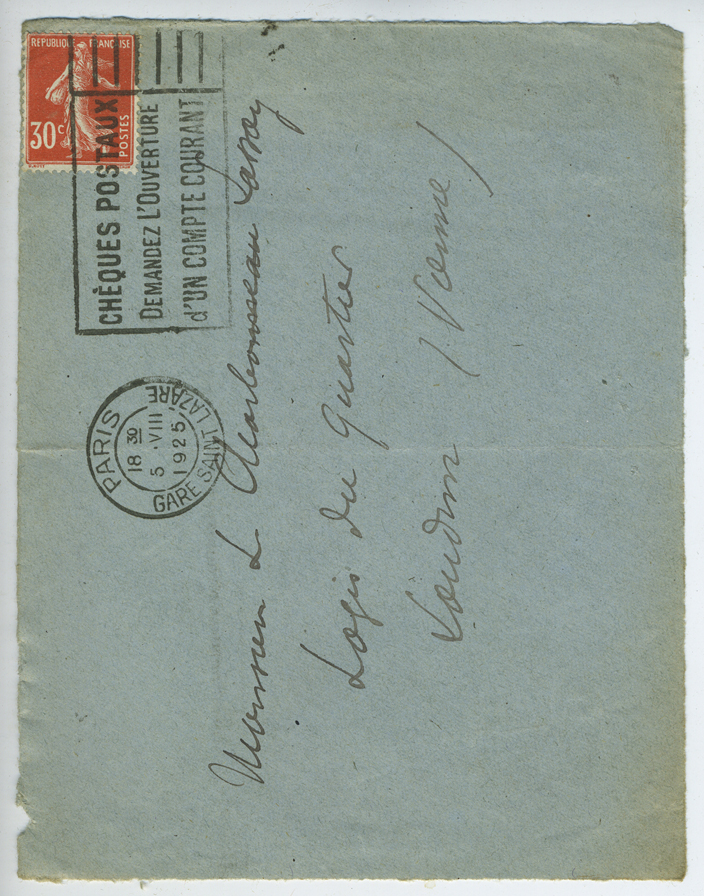 REPUBLIQUE FRANÇAISE
30c
POSTES
CHÈQUES POSTAUX
DEMANDEZ L'OUVERTURE
d'UN COMPTE COURANT
PARIS
18 30
5 VIII
1925
GARE SAINT LAZARE
Monsieur L Charbonneau Lassay
Logis du Quartier
Loudun (Vienne)